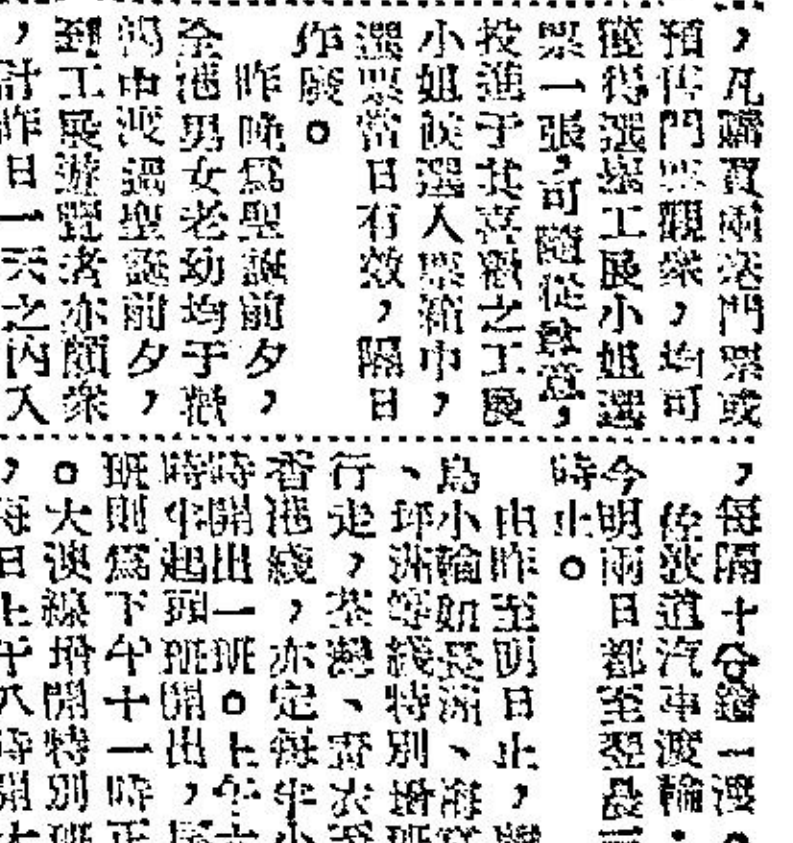 ，凡購買兩送門票或
預售門票觀眾，均可
獲得選舉工展小姐選
票一張，可隨從致意，
投進于其喜歡之工展
小姐候選人票箱中，
選票當日有效，隔日
作廢。
昨晚爲聖誕前夕，
全港男女老幼均于歡
中渡過聖誕前夕，
到工展遊覽者亦頗眾
，計昨日一天之內入
，每隔十分鐘一
佐敦道汽車渡輪
今明兩日都至翌晨
時止。
由昨至明日止，
島小輪如長洲、
、坪洲等綫特別增
行走，荃灣、
香港綫，亦定每半小
時開出一班。上午六
時半起頭班開出，
班則爲下午十一時正
。大澳線增開特別班
，每日上午八時開